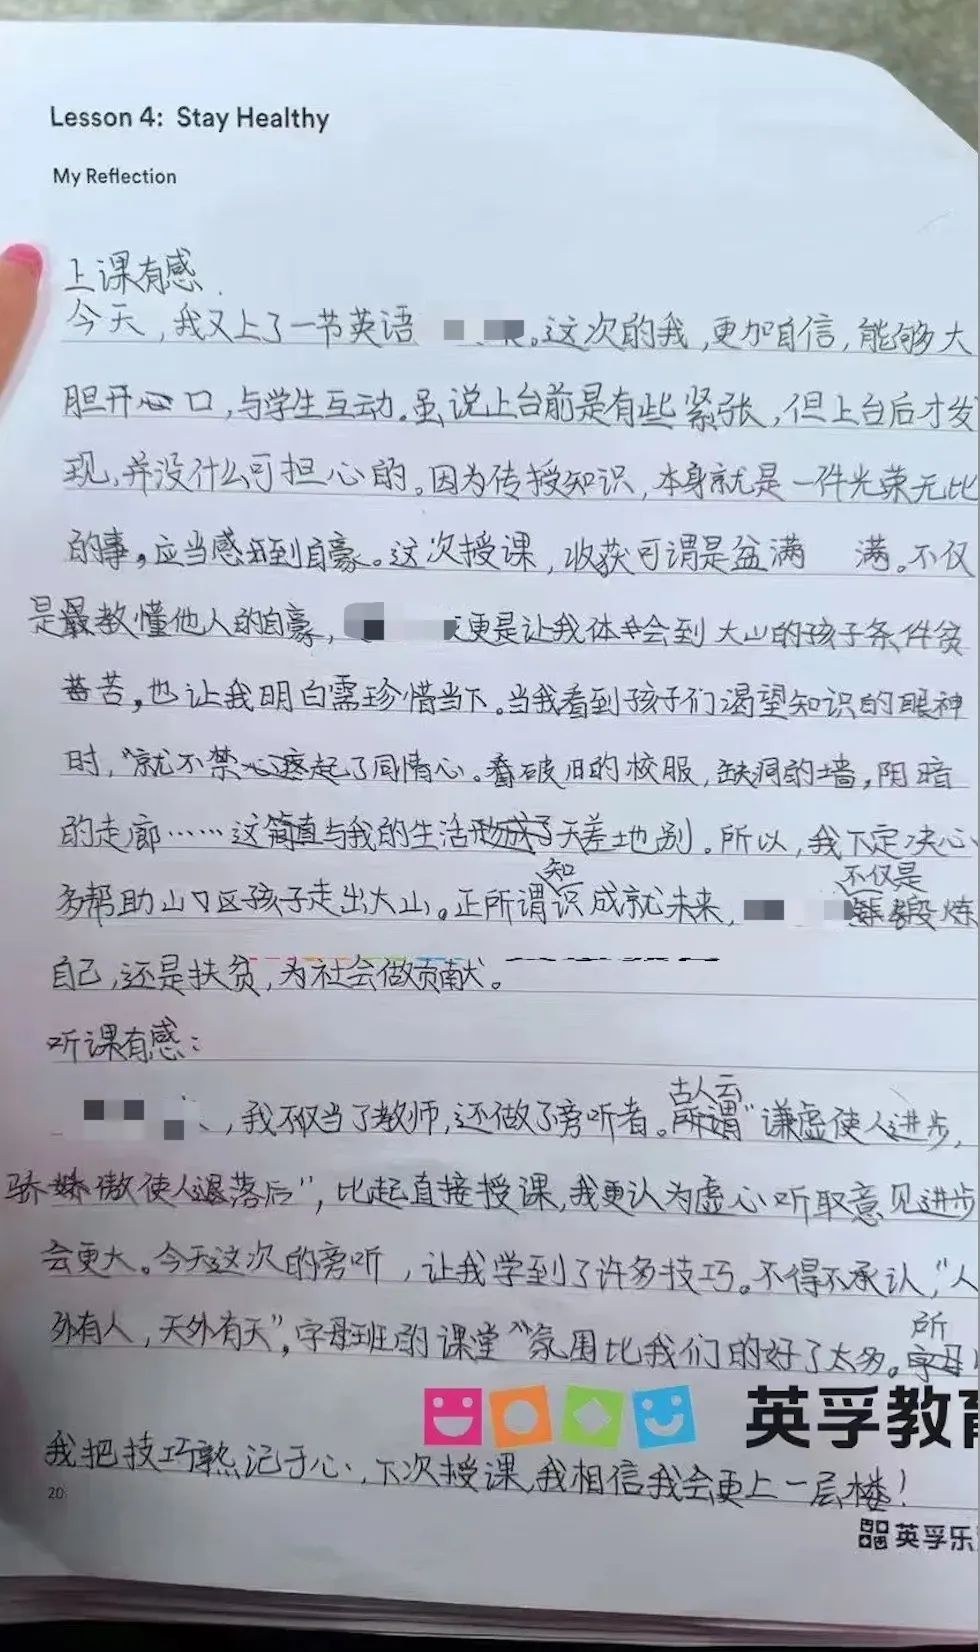 Lesson 4: Stay Healthy
My Reflection
上课有感.
今天,我又上了一节英语。这次的我,更加自信,能够大
胆开口,与学生互动。虽说上台前是有些紧张,但上台后才发
现,并没什么可担心的。因为传授知识,本身就是一件光荣无比
的事,应当感到自豪。这次授课,收获可谓是盆满 满。不仅
是教懂他人的自豪,更是让我体会到大山的孩子条件贫
苦,也让我明白需珍惜当下。当我看到孩子们渴望知识的眼神
时,就不禁起了同情心。看破旧的校服,缺洞的墙,阴暗
的走廊……这简直与我的生活形成了天差地别。所以,我下定决心
多帮助山区孩子走出大山。正所谓知识成就未来,不仅是锻炼
自己,还是扶贫,为社会做贡献。
听课有感:
,我不仅当了教师,还做了旁听者。古人云"谦虚使人进步,
骄傲使人落后",比起直接授课,我更认为虚心听取意见进步
会更大。今天这次的旁听,让我学到了许多技巧。不得不承认,"人
外有人,天外有天",字母班的课堂氛围比我们的好了太多。所
我把技巧熟记于心,下次授课,我相信我会更上一层楼!
英孚教育
20
英孚乐